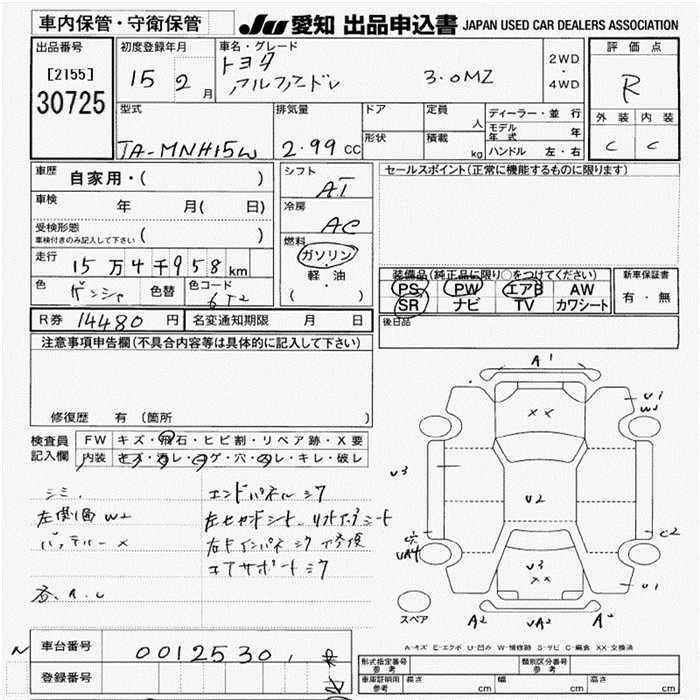 車内保管・守衛保管
JU 愛知 出品申込書 JAPAN USED CAR DEALERS ASSOCIATION
出品番号
[2155]
30725
初度登録年月
15 2 月
車名・グレード
トヨタ
アルファード
3.0MZ
2WD
・
4WD
評価点
R
外装 内装
C C
型式
TA-MNH15W
排気量
2.99 CC
ドア
形状
定員
人
積載
kg
ディーラー・並行
モデル年式 年
ハンドル 左・右
車歴
自家用・( )
車検
年 月( 日)
受検形態
車検付きのみ記入して下さい ( )
走行
15万4千958km
色
ゲンシャ
色替
色コード
6T2
シフト
AT
冷房
AC
燃料
ガソリン
軽・油
( )
セールスポイント(正常に機能するものに限ります)
装備品(純正品に限り○をつけてください)
PS PW エアB AW
SR ナビ TV カワシート
新車保証書
有・無
後日品
R券 14480 円 名変通知期限 月 日
注意事項申告欄(不具合内容等は具体的に記入して下さい)
修復歴 有(箇所 )
検査員
記入欄
FW キズ・飛石・ヒビ割・リペア跡・X要
内装 キズ・汚レ・コゲ・穴・スレ・キレ・破レ
シミ
左側面W2
バッテリー×
エンドパネルシワ
右インパネシワ修復
コアサポートシワ
A1
U1
W2
XX
U3
U2
UA4
C2
U3
XX
U1
A2 UA2 A2
スペア
A-キズ E-エクボ U-凹み W-補修跡 S-サビ C-腐食 XX-交換済
車台番号
0012530
登録番号
形式指定番号
参考
類別区分番号
参考
車庫証明用
参考
長さ cm 幅 cm 高さ cm